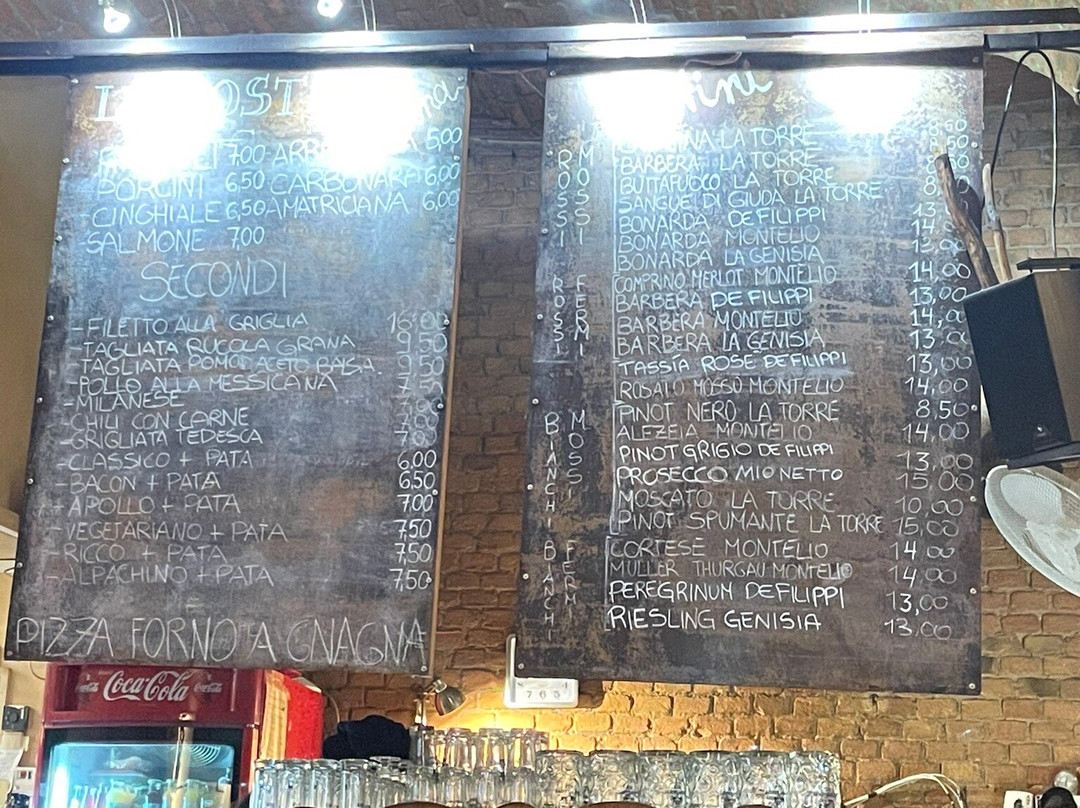 5,00
7,00
PORCINI 6,50 CARBONARA 6,00
-CINGHIALE 6,50 AMATRICIANA 6,00
-SALMONE 7,00
SECONDI
-FILETTO ALLA GRIGLIA
-TAGLIATA RUCOLA GRANA 9,50
-TAGLIATA POMOD. ACETO BALSA. 9,50
-POLLO ALLA MESSICANA
-MILANESE
-CHILI CON CARNE
-GRIGLIATA TEDESCA 7,00
-CLASSICO + PATA 6,00
-BACON + PATA 6,50
-APOLLO + PATA 7,00
-VEGETARIANO + PATA 7,50
-RICCO + PATA 7,50
-ALPACHINO + PATA 7,50
PIZZA FORNO A GNAGNA
Coca-Cola
Vini
ROSSI MOSSI
LA TORRE
BARBERA LA TORRE
BUTTAFUOCO LA TORRE
SANGUE DI GIUDA LA TORRE
BONARDA DEFILIPPI
BONARDA MONTELIO
BONARDA LA GENISIA
ROSSI FERMI
COMPRINO MERLOT MONTELIO 14,00
BARBERA DE FILIPPI 13,00
BARBERA MONTELIO 14,00
BARBERA LA GENISIA 13,00
TASSÍA ROSE DEFILIPPI 13,00
ROSATO MOSSO MONTELIO 14,00
BIANCHI MOSSI
PINOT NERO LA TORRE 8,50
ALEZEIA MONTELIO 14,00
PINOT GRIGIO DE FILIPPI 13,00
PROSECCO MIONETTO 15,00
MOSCATO LA TORRE 10,00
PINOT SPUMANTE LA TORRE 15,00
BIANCHI FERMI
CORTESE MONTELIO 14,00
MULLER THURGAU MONTELIO 14,00
PEREGRINUM DEFILIPPI 13,00
RIESLING GENISIA 13,00